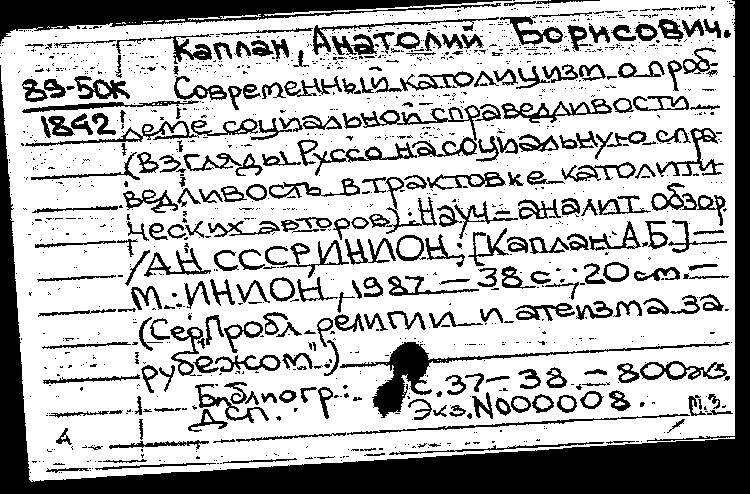 Каплан, Анатолий Борисович.
89-50К Современный католицизм о проб-
1842 леме социальной справедливости
(Взгляды Руссо на социальную спра-
ведливость в трактовке католити-
ческих авторов) : Науч.-аналит. обзор
/АН СССР, ИНИОН ; [Каплан А.Б.] —
М. : ИНИОН, 1987. — 38 с. ; 20 см. —
(Сер. "Пробл. религии и атеизма за
рубежом".)
Библиогр.: с. 37-38. — 800 экз.
ДСП. Экз. N000008.